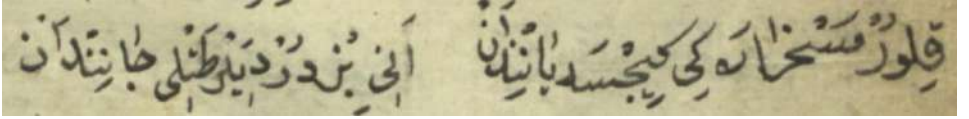 قِلورْ مَسْخَرا نَه كِي كِيجْسَه يَانِنْدَانْ اَنِي بَزْدُرْدِيلَرْ طَتْلِي جَانِنْدَانْ